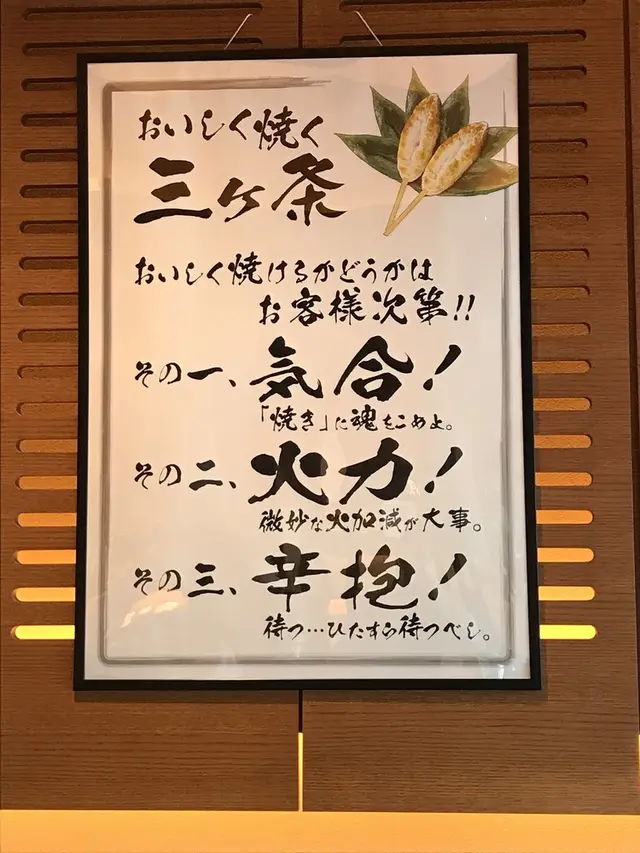 おいしく焼く
三ヶ条
おいしく焼けるかどうかは
お客様次第!!
その一、気合!
「焼き」に魂をこめよ。
その二、火力!
微妙な火加減が大事。
その三、辛抱!
待つ…ひたすら待つべし。